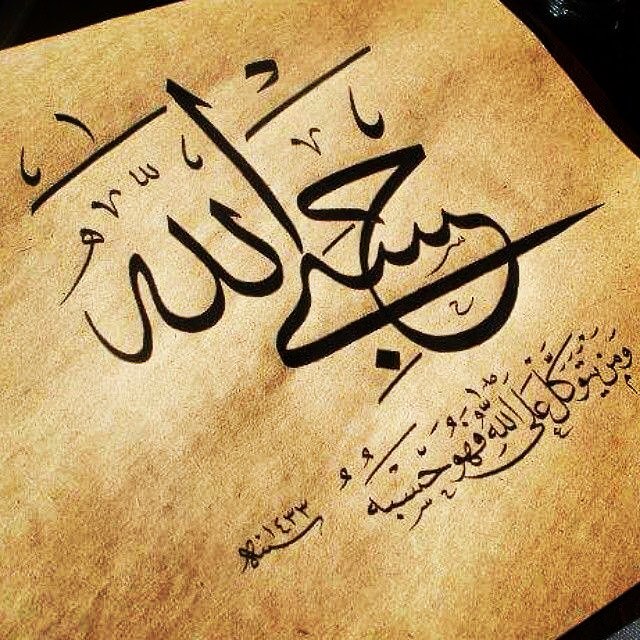 حسبي الله
وَمَن يَتَوَكَّلْ عَلَى اللَّهِ فَهُوَ حَسْبُهُ
سنة ١٤٣٣